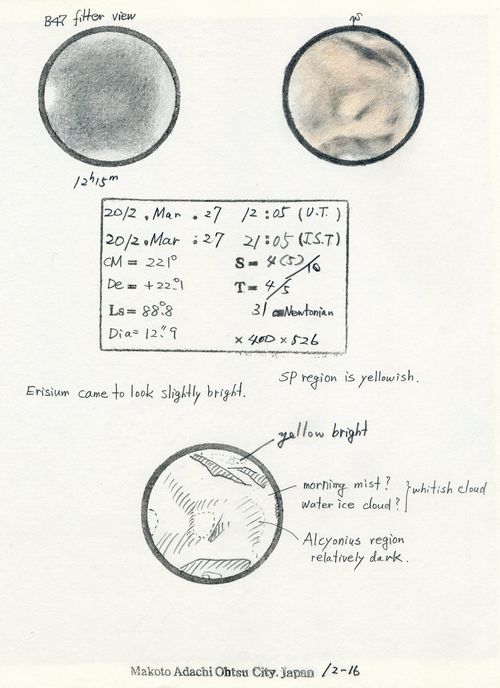 B47 filter view
12h15m
2012 . Mar . 27 12:05 (U.T.)
2012 . Mar : 27 21:05 (J.S.T)
CM = 221° S = 4(5)/10
De = +22.°1 T = 4/5
Ls = 88.°8 31 cm Newtonian
Dia = 12."9 ×400 ×526
SP region is yellowish.
Erisium came to look slightly bright.
yellow bright
morning mist?
water ice cloud?
} whitish cloud
Alcyonius region
relatively dark.
Makoto Adachi Ohtsu City. Japan 12-16